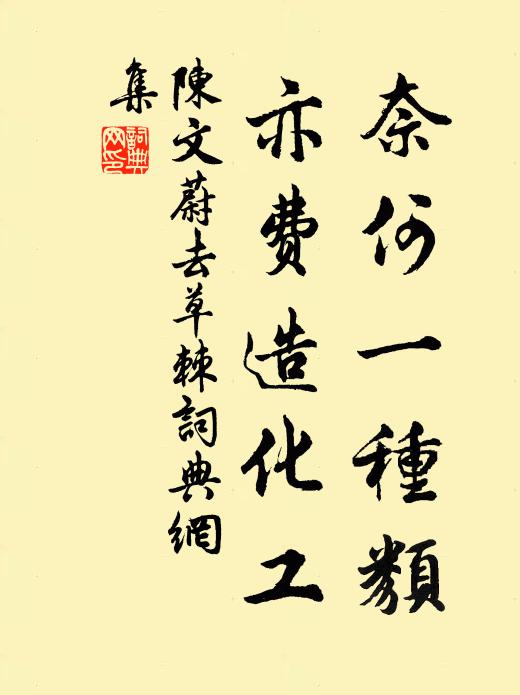 奈何一種類
亦費造化工
陳文蔚去草棘詞典網
集
詞典網印